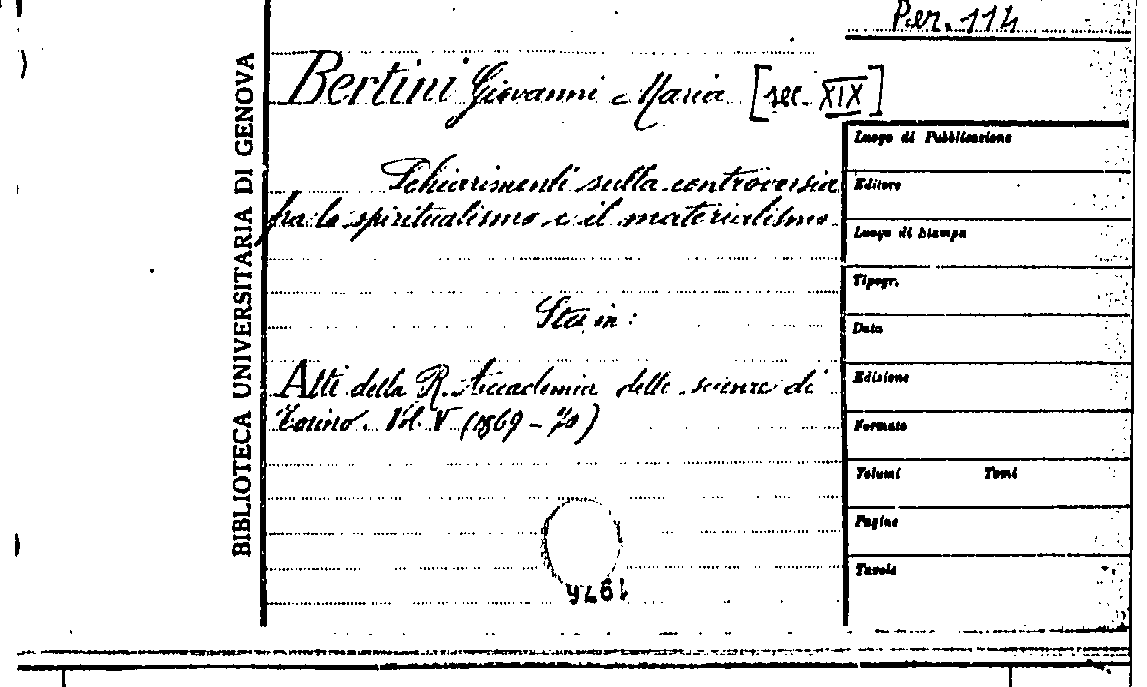 Per. 114
BIBLIOTECA UNIVERSITARIA DI GENOVA
Bertini Giovanni Maria [sec. XIX]
Schiarimenti sulla controversia
fra lo spiritualismo e il materialismo
Sta in:
Atti della R. Accademia delle scienze di
Torino. Vol. V (1869-70)
1976
Luogo di Pubblicazione
Editore
Luogo di Stampa
Tipogr.
Data
Edizione
Formato
Volumi Tomi
Pagine
Tavole